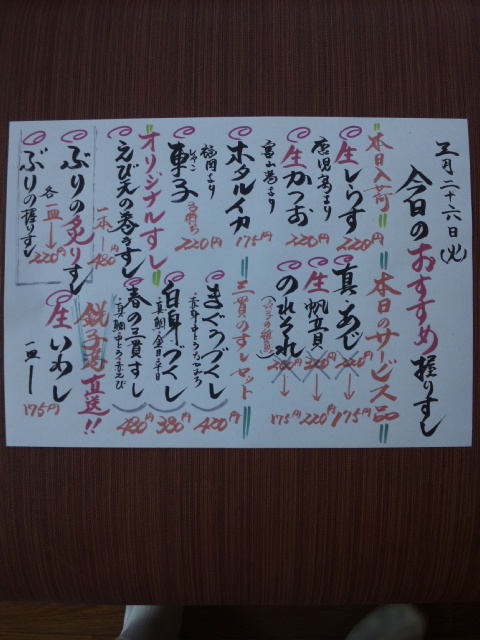 五月二十六日(火)
今日のおすすめ握りすし
"本日入荷"
生しらす 220円
鹿児島より
生かつお 220円
富山湾より
ホタルイカ 175円
福岡より
車子 220円
しゃこ
"本日のサービス品"
真・あじ
220円→175円
生帆立貝
320円→220円
のれそれ
280円→175円
三貫のすしセット
まぐろづくし 420円
白身づくし 380円
春の三貫すし 480円
"オリジナルすし"
えび天の巻きすし
一本 480円
ぶりの炙りすし
ぶりの握りすし
各一皿→220円
銚子港直送!!
生いわし
一皿 175円